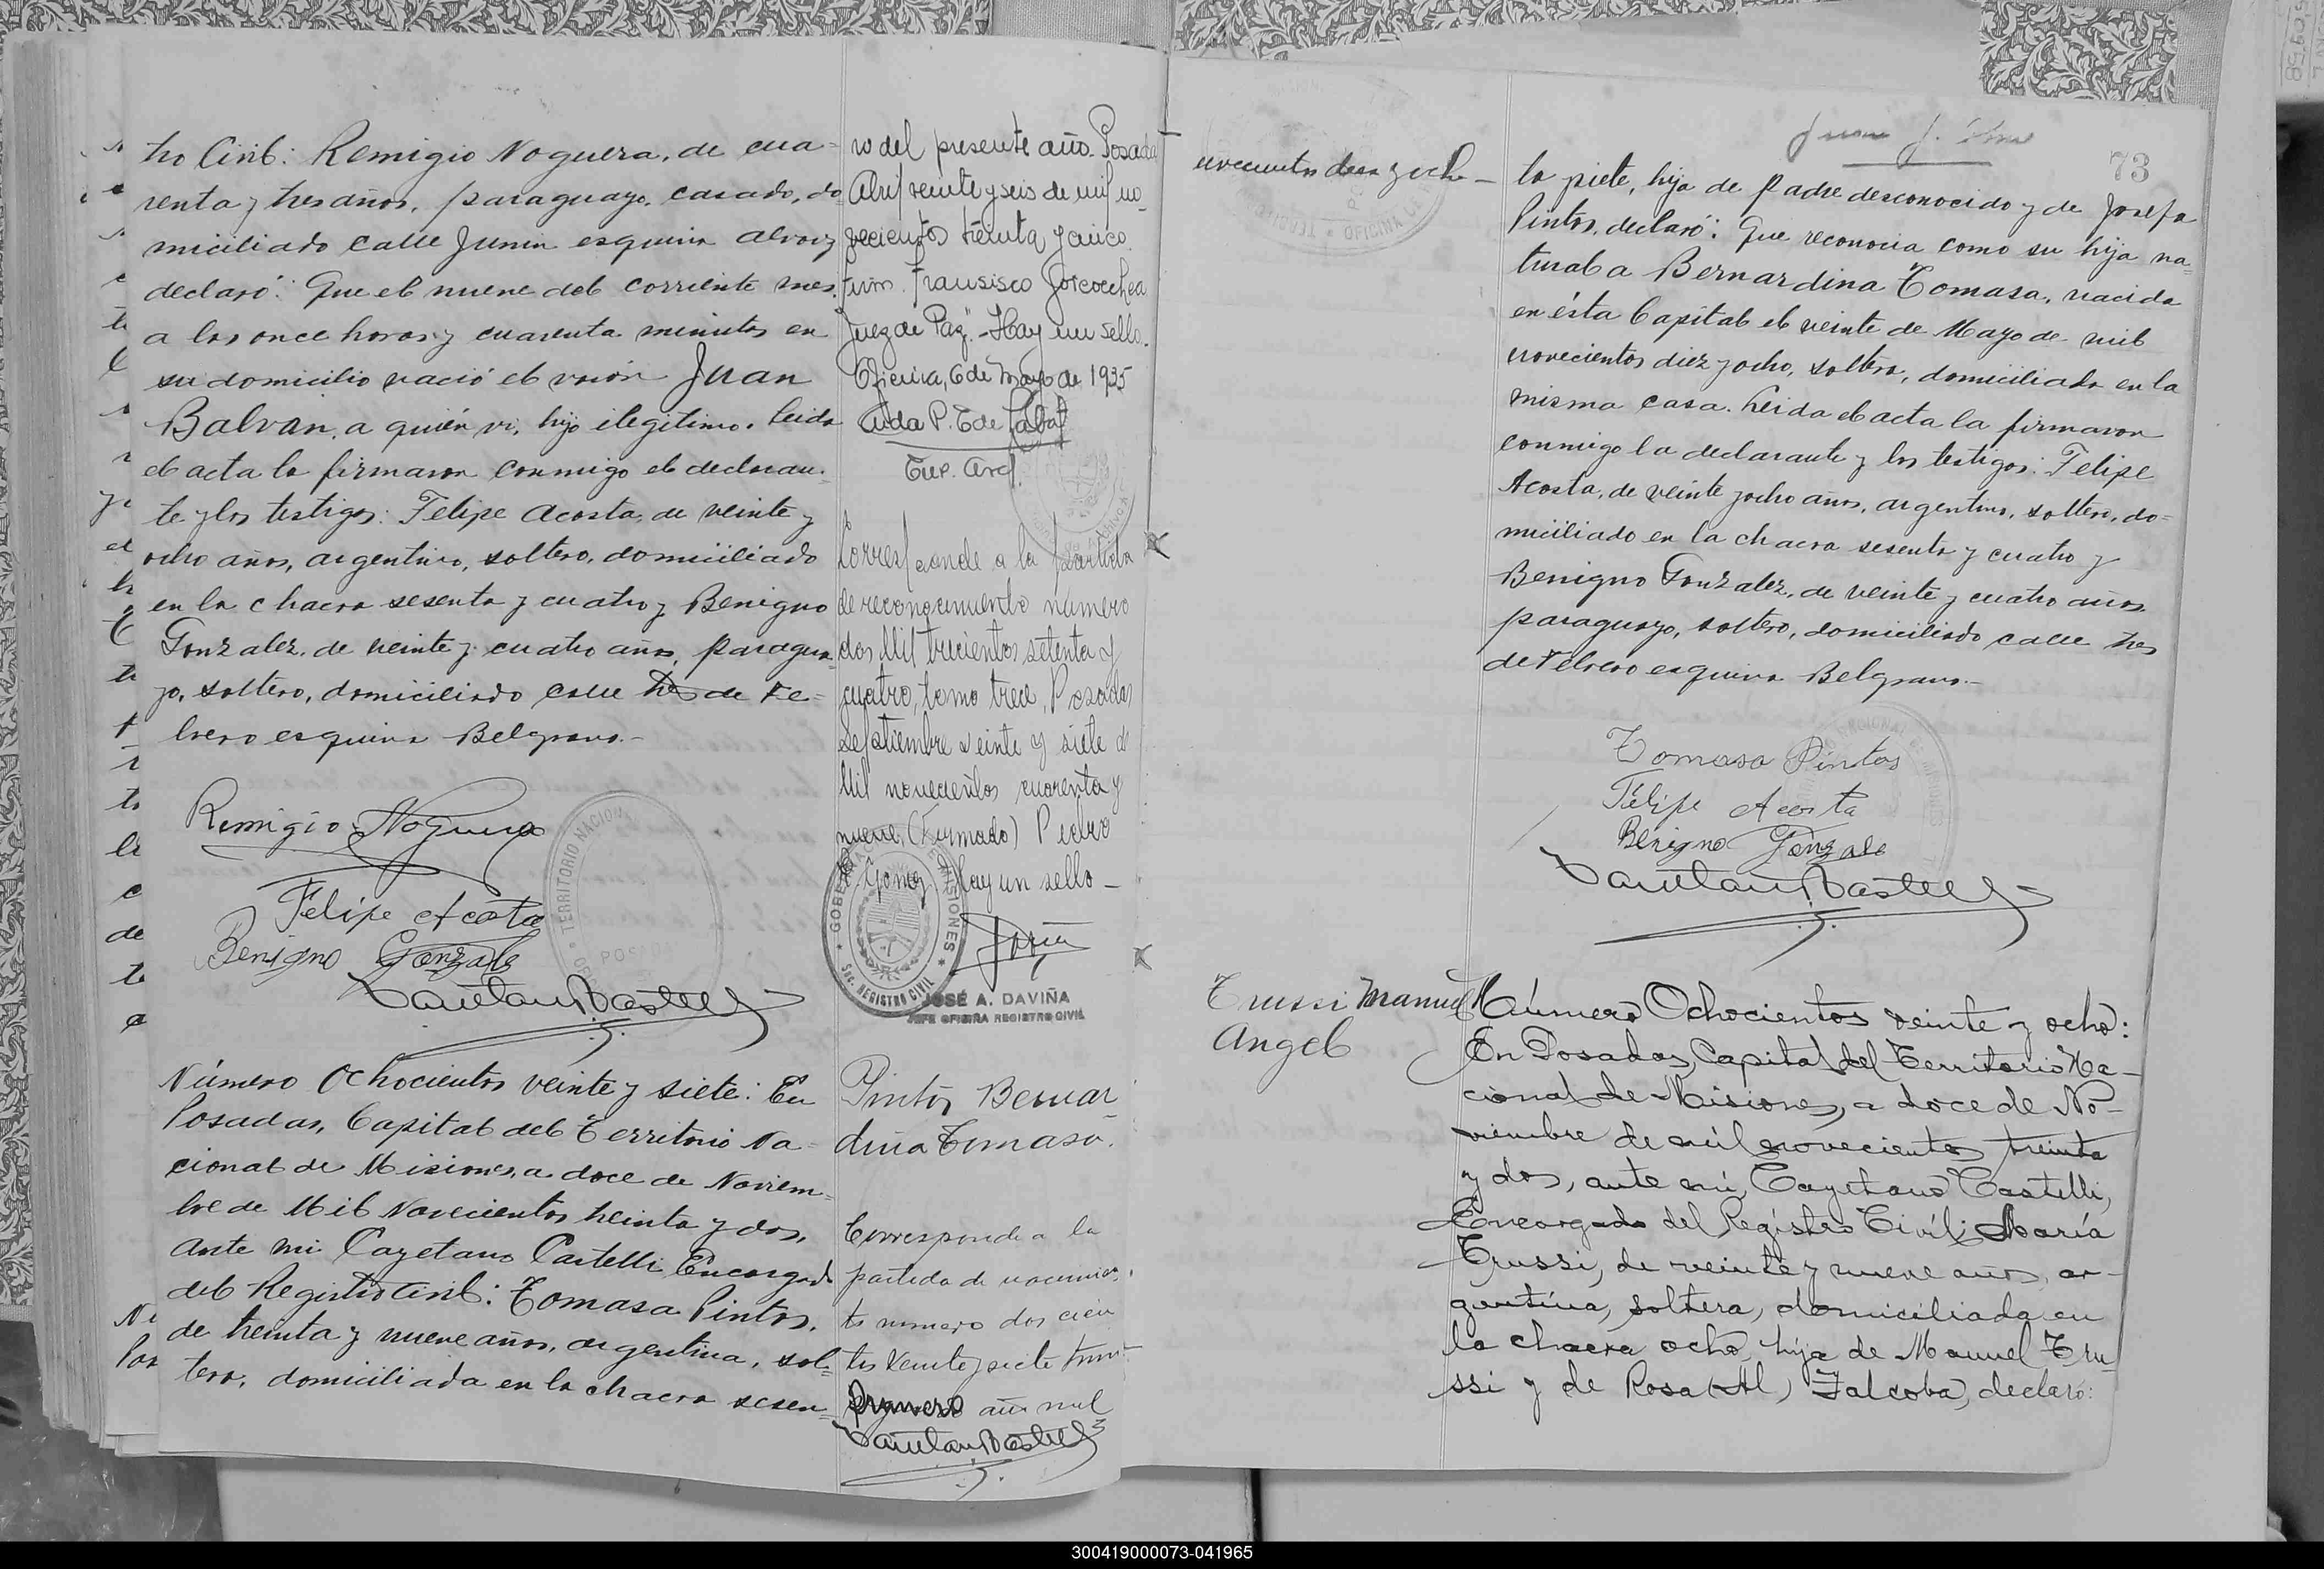 tro Civil: Remigio Noguera, de cua-
renta y tres años, paraguayo, casado, do-
miciliado calle Junin esquina Alvarez
declaró: Que el nueve del corriente mes
a las once horas y cuarenta minutos en
su domicilio nació el varón Juan
Balvan, a quién vi, hijo ilegítimo. Leida
el acta la firmaron conmigo el declaran-
te y los testigos: Felipe Acosta, de veinte y
ocho años, argentino, soltero, domiciliado
en la chacra sesenta y cuatro y Benigno
Gonzalez, de veinte y cuatro años, paragua-
yo, soltero, domiciliado calle tres de Fe-
brero esquina Belgrano.-
Remigio Noguera
Felipe Acosta
Benigno Gonzale
Número Ochocientos veinte y siete: En
Posadas, Capital del Territorio Na-
cional de Misiones, a doce de Noviem-
bre de Mil Novecientos treinta y dos,
ante mi Cayetano Castelli Encargado
del Registro Civil: Tomasa Pintos,
de treinta y nueve años, argentina, sol-
tera, domiciliada en la chacra sesen-
ro del presente año. Posadas
Abril veinte y seis de mil no-
vecientos treinta y cinco.
Firm. Fransisco Goicoechea
Juez de Paz". Hay un sello.
Oficina, 6 de Mayo de 1935
Aida P. T de Labat
Enc. Arch.
Corresponde a la partida
de reconocimiento número
dos Mil trecientos setenta y
cuatro, tomo trece, Posadas
Septiembre veinte y siete de
Mil novecientos cuarenta y
nueve, (Firmado) Pedro
Gomez Hay un sello -
GOBERNACION DE MISIONES
Sec. REGISTRO CIVIL
JOSÉ A. DAVIÑA
JEFE OFICINA REGISTRO CIVIL
Pintos Bernar-
dina Tomasa.
Corresponde a la
partida de nacimien-
to numero dos cien
tos veinte y siete tomo
primero año mil
novecientos diez y ocho -
73
ta y siete, hija de padre desconocido y de Josefa
Pintos, declaró: Que reconocia como su hija na-
tural a Bernardina Tomasa, nacida
en ésta Capital el veinte de Mayo de mil
novecientos diez y ocho, soltera, domiciliada en la
misma casa. Leida el acta la firmaron
conmigo la declarante y los testigos: Felipe
Acosta, de veinte y ocho años, argentino, soltero, do-
miciliado en la chacra sesenta y cuatro y
Benigno Gonzalez, de veinte y cuatro años,
paraguayo, soltero, domiciliado calle tres
de Febrero esquina Belgrano.-
Tomasa Pintos
Felipe Acosta
Benigno Gonzale
Trussi Manuel
Angel
Número Ochocientos veinte y ocho:
En Posadas, Capital del Territorio Na-
cional de Misiones, a doce de No-
viembre de mil novecientos treinta
y dos, ante mí, Cayetano Castelli,
Encargado del Registro Civil: María
Trussi, de veinte y nueve años, ar-
gentina, soltera, domiciliada en
la chacra ocho, hija de Manuel Tru-
ssi y de Rosa Falcoba, declaró:
300419000073-041965